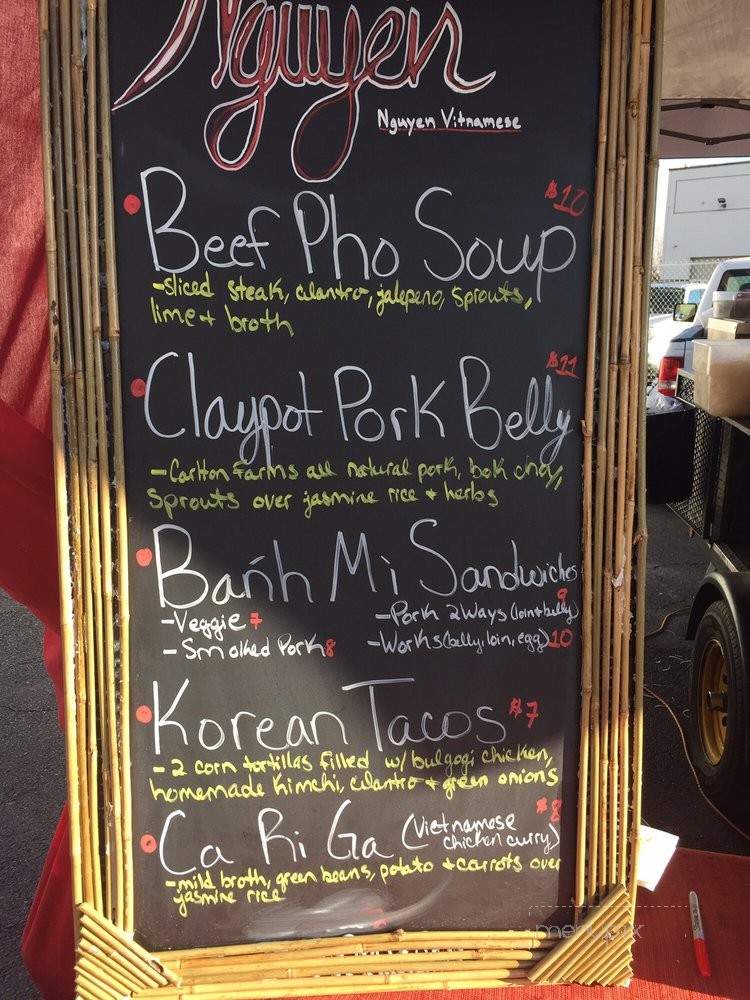 Nguyen
Nguyen Vitnamese
$10
Beef Pho Soup
-sliced steak, cilantro, jalepeno, sprouts,
lime + broth
$11
Claypot Pork Belly
-Carlton Farms all natural pork, bok choy,
sprouts over jasmine rice + herbs
Bánh Mi Sandwiches
-Veggie 7
-Pork 2 ways (loin+belly) 9
-Smoked Pork 8
-Works (belly, loin, egg) 10
Korean Tacos $7
-2 corn tortillas filled w/ bulgogi chicken,
homemade kimchi, cilantro + green onions
Ca Ri Ga (Vietnamese chicken curry) $8
-mild broth, green beans, potato + carrots over
jasmine rice
menupix